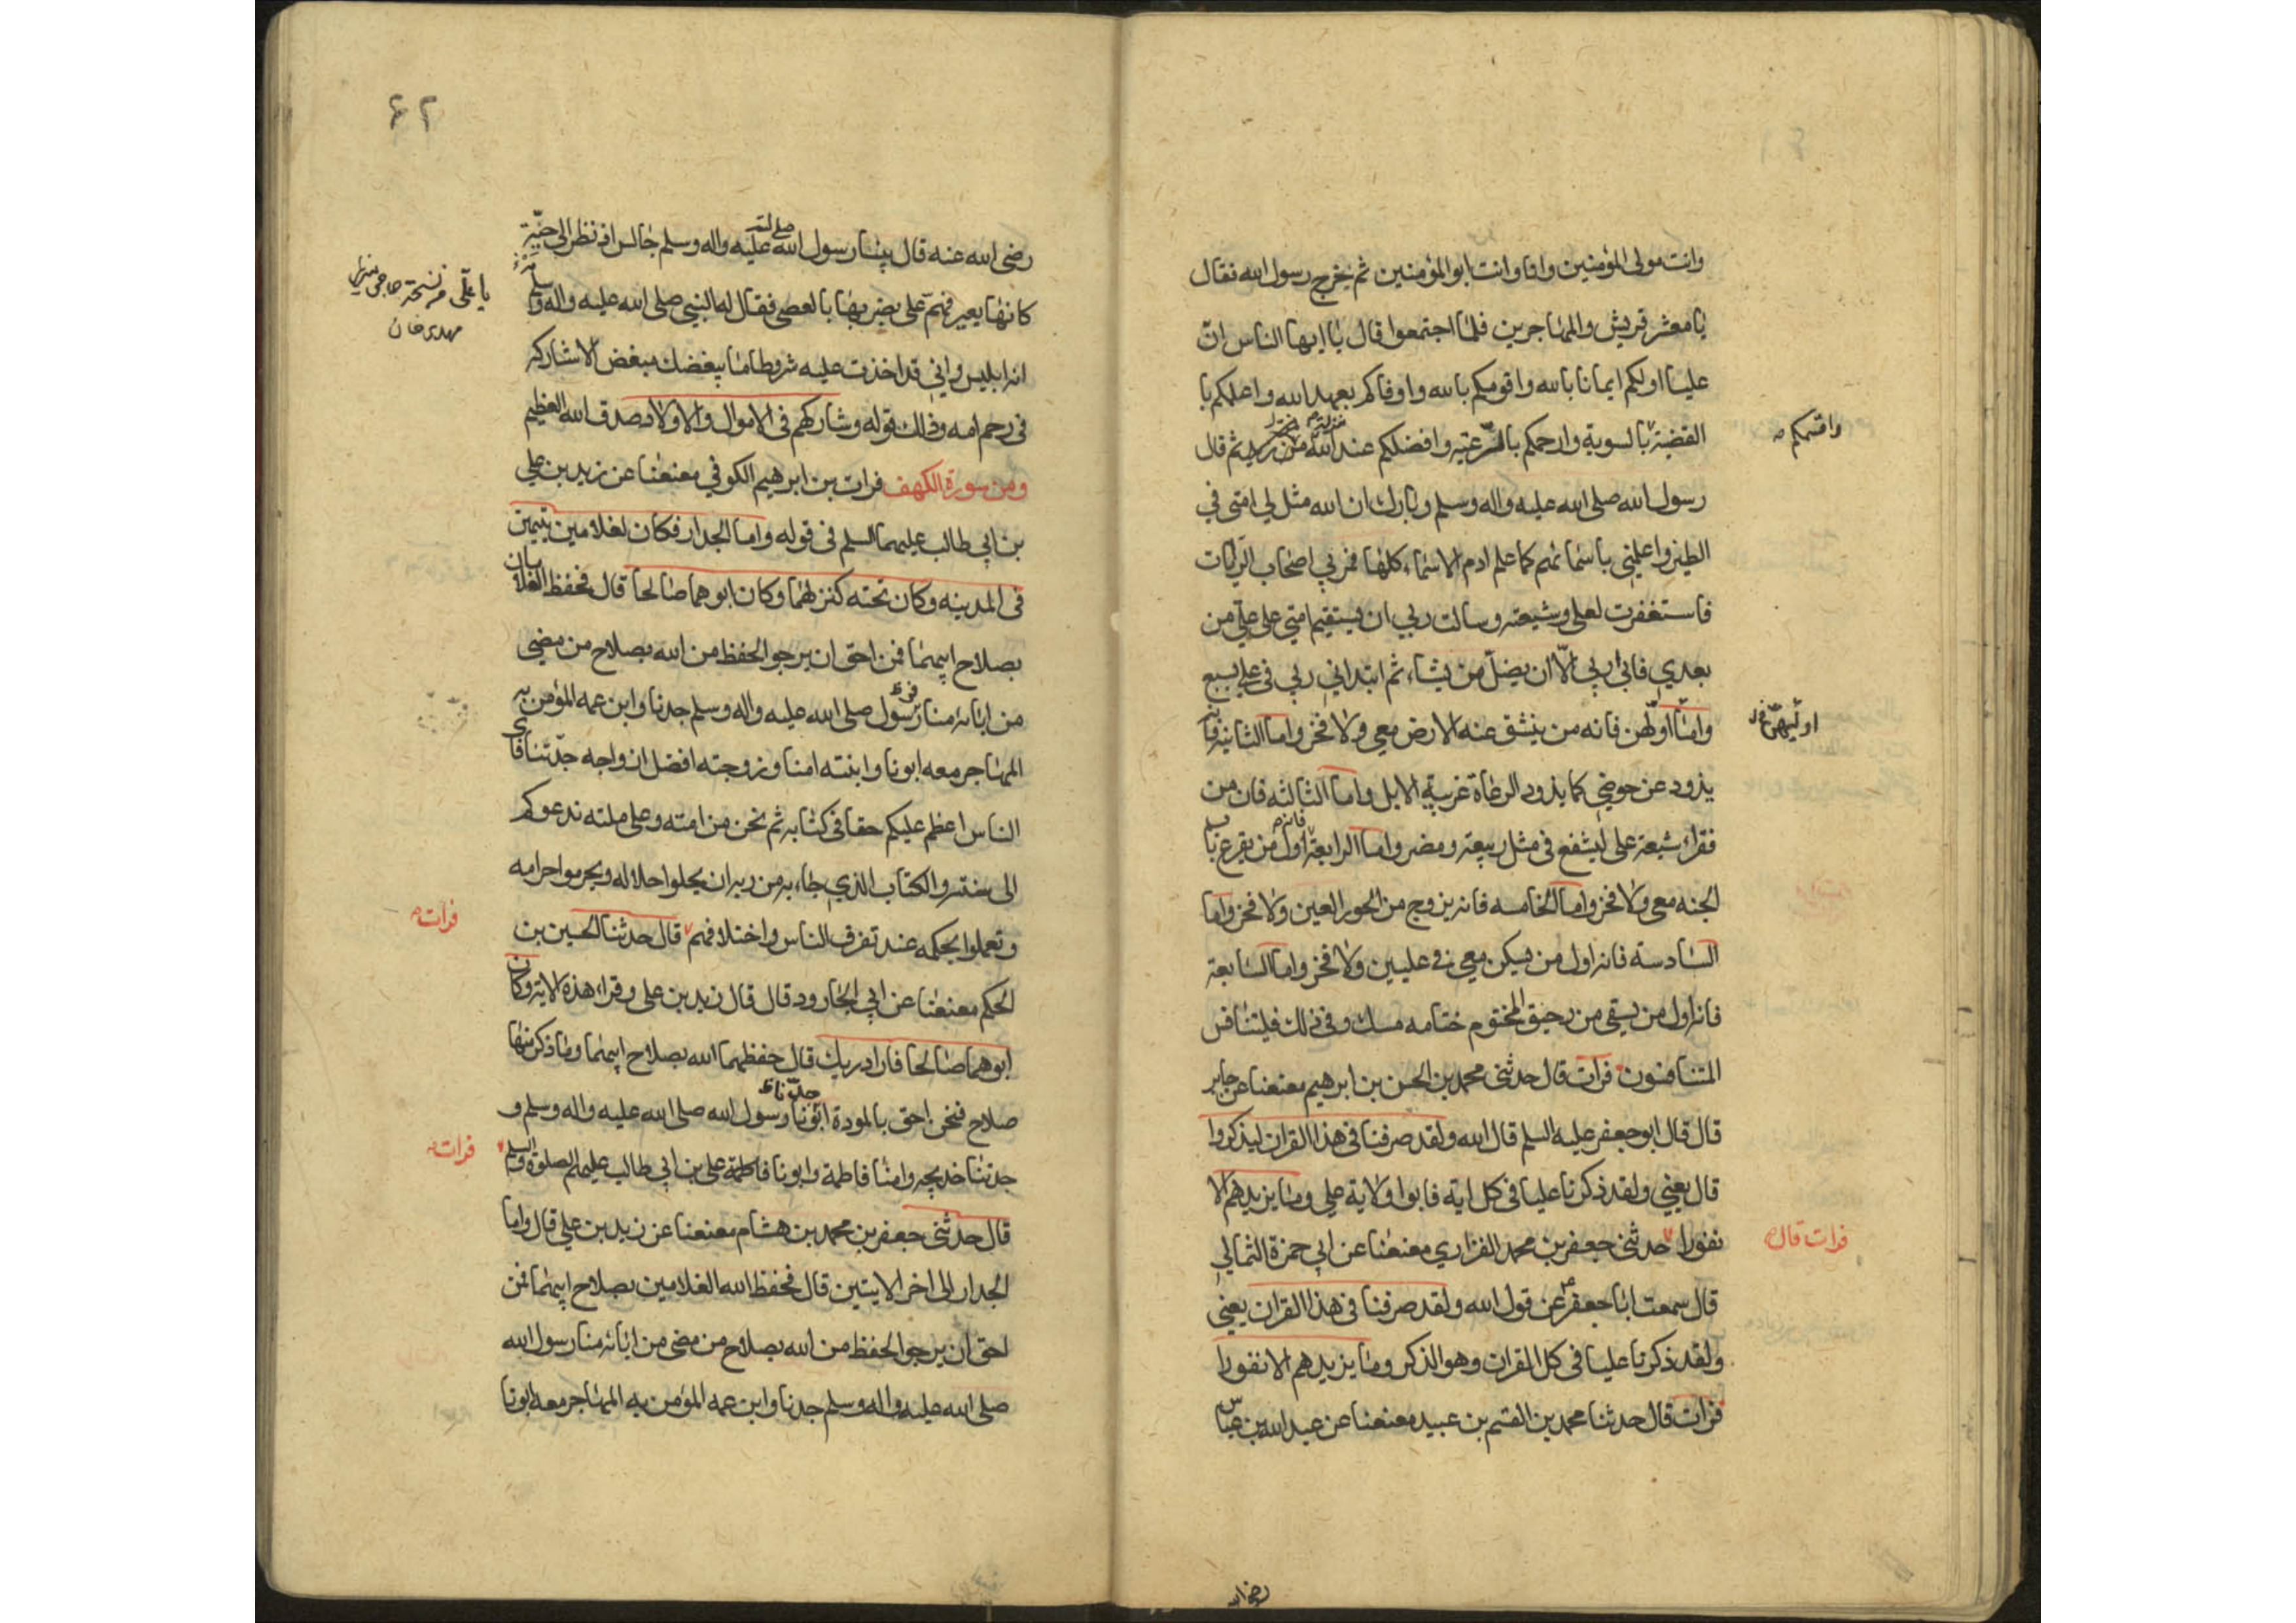 وانت مولى المؤمنين وانا وانت ابو المؤمنين ثم خرج رسول الله فقال
يا معشر قريش والمهاجرين فلما اجتمعوا قال يا ايها الناس ان
عليا اولكم ايمانا بالله واقومكم بالله واوفاكم بعهد الله واعلمكم با
القضية بالسوية وارحمكم بالرعية وافضلكم عند الله ثم قال
واقسمكم
رسول الله صلى الله عليه واله وسلم وبارك ان الله مثل لي امتي في
الطين واعلمني باسمائهم كما علم ادم الاسماء كلها فمر بي اصحاب الرايات
فاستغفرت لعلي وشيعته وسالت ربي ان يستقيم امتي على علي من
بعدي فابى ربي الا ان يضل من يشاء ثم ابتداني ربي في علي بسبع
واما اولهن فانه من ينشق عنه الارض معي ولا فخر واما الثانية فانه
اوليهن
يذود عن حوضي كما يذود الرعاة غريبة الابل واما الثالثة فان من
فقراء شيعة علي ليشفع في مثل ربيعة ومضر واما الرابعة فانه اول من يقرع باب
الجنه معي ولا فخر واما الخامسه فانه يزوج من الحور العين ولا فخر واما
السادسة فانه اول من يسكن معي في عليين ولا فخر واما السابعة
فانه اول من يسقى من رحيق المختوم ختامه مسك وفي ذلك فليتنافس
المتنافسون فرات قال حدثني محمد بن الحسن بن ابرهيم معنعنا عن جابر
قال قال ابو جعفر عليه السلم قال الله ولقد صرفنا في هذا القران ليذكروا
قال يعني ولقد ذكرنا عليا في كل اية فابوا ولاية علي وما يزيدهم الا
نفورا حدثني جعفر بن محمد الفزاري معنعنا عن ابي حمزة الثمالي
فرات قال
قال سمعت ابا جعفر عن قول الله ولقد صرفنا في هذا القران يعني
ولقد ذكرنا عليا في كل القران وهو الذكر وما يزيدهم الا نفورا
فرات قال حدثنا محمد بن القسم بن عبيد معنعنا عن عبد الله بن عباس
رضي الله
٦٢
رضي الله عنه قال بينا رسول الله صلى الله عليه واله وسلم جالس اذ نظر الى حية
كانها بعير فهم علي بضربها بالعصى فقال له النبي صلى الله عليه واله وسلم
يا علي من نسخة حاجي ميرزا
مهدي خان
انه ابليس واني قد اخذت عليه شروطا ما يبغضك مبغض الا شاركه
في رحم امه وذلك قوله وشاركهم في الاموال والاولاد صدق الله العظيم
ومن سورة الكهف فرات بن ابرهيم الكوفي معنعنا عن زيد بن علي
بن ابي طالب عليهما السلم في قوله واما الجدار فكان لغلامين يتيمين
في المدينه وكان تحته كنز لهما وكان ابوهما صالحا قال فحفظ الغلامان
بصلاح ابيهما فمن احق ان يرجو الحفظ من الله بصلاح من مضى
من ابائه منا رسول صلى الله عليه واله وسلم جدنا وابن عمه المؤمن به
المهاجر معه ابونا وابنته امنا وزوجته افضل ازواجه جدتنا فاي
الناس اعظم عليكم حقا في كتابه ثم نحن من امته وعلى ملته ندعوكم
الى سنته والكتاب الذي جاء به من ربه ان يحلوا حلاله ويحرموا حرامه
وتعملوا بحكمه عند تفرق الناس واختلافهم قال حدثنا الحسين بن
فرات
الحكم معنعنا عن ابي الجارود قال قال زيد بن علي وقرا هذه الاية وكان
ابوهما صالحا فاراد ربك قال حفظهما الله بصلاح ابيهما وما ذكر منهما
صلاح فنحن احق بالمودة ابونا رسول الله صلى الله عليه واله وسلم و
جدتنا خديجه وامنا فاطمة وابونا علي بن ابي طالب عليهم الصلوة والسلم
فرات
قال حدثني جعفر بن محمد بن هشام معنعنا عن زيد بن علي قال واما
الجدار الى اخر الايتين قال فحفظ الله الغلامين بصلاح ابيهما فمن
احق ان يرجو الحفظ من الله بصلاح من مضى من ابائه منا رسول الله
صلى الله عليه واله وسلم جدنا وابن عمه المؤمن به المهاجر معه ابونا